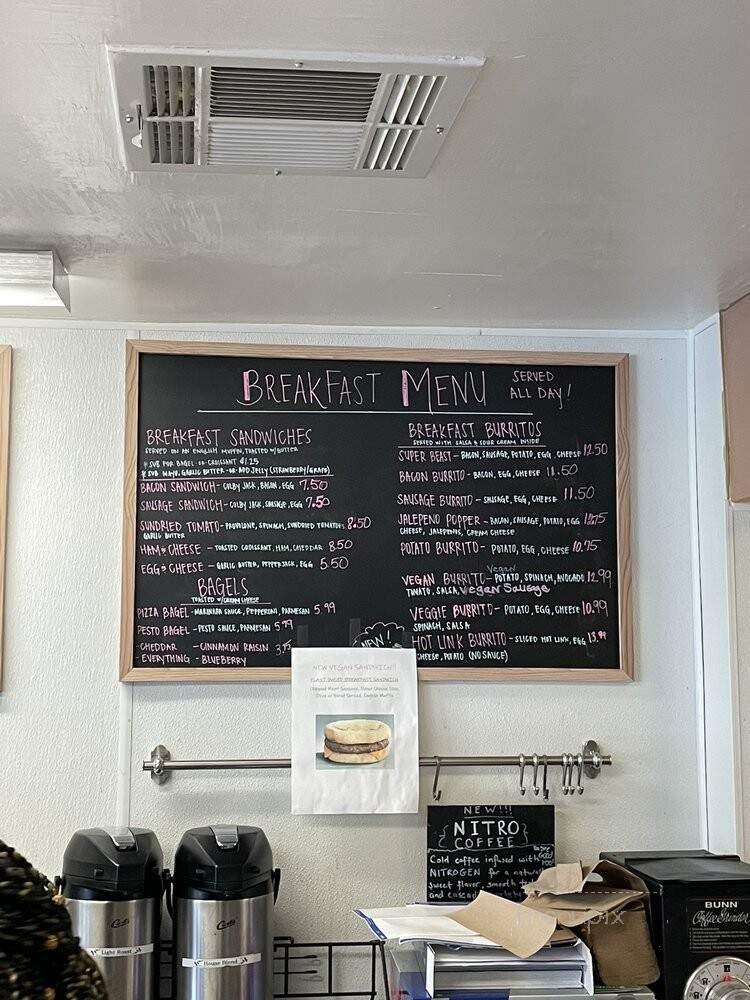 BREAKFAST MENU SERVED ALL DAY!
BREAKFAST SANDWICHES
SERVED ON AN ENGLISH MUFFIN, TOASTED W/BUTTER
* SUB FOR BAGEL -OR- CROISSANT $1.25
* SUB MAYO, GARLIC BUTTER -OR- ADD JELLY (STRAWBERRY/GRAPE)
BACON SANDWICH - COLBY JACK, BACON, EGG 7.50
SAUSAGE SANDWICH - COLBY JACK, SAUSAGE, EGG 7.50
SUNDRIED TOMATO - PROVOLONE, SPINACH, SUNDRIED TOMATOES 8.50
GARLIC BUTTER
HAM & CHEESE - TOASTED CROISSANT, HAM, CHEDDAR 8.50
EGG & CHEESE - GARLIC BUTTER, PEPPER JACK, EGG 5.50
BAGELS
TOASTED W/CREAM CHEESE
PIZZA BAGEL - MARINARA SAUCE, PEPPERONI, PARMESAN 5.99
PESTO BAGEL - PESTO SAUCE, PARMESAN 5.99
- CHEDDAR - CINNAMON RAISIN 3.75
- EVERYTHING - BLUEBERRY
BREAKFAST BURRITOS
SERVED WITH SALSA & SOUR CREAM INSIDE
SUPER BEAST - BACON, SAUSAGE, POTATO, EGG, CHEESE 12.50
BACON BURRITO - BACON, EGG, CHEESE 11.50
SAUSAGE BURRITO - SAUSAGE, EGG, CHEESE 11.50
JALEPENO POPPER - BACON, SAUSAGE, POTATO, EGG 12.75
CHEESE, JALEPENOS, CREAM CHEESE
POTATO BURRITO - POTATO, EGG, CHEESE 10.75
Vegan
VEGAN BURRITO - POTATO, SPINACH, AVOCADO 12.99
TOMATO, SALSA, Vegan Sausage
VEGGIE BURRITO - POTATO, EGG, CHEESE 10.99
SPINACH, SALSA
NEW!
HOT LINK BURRITO - SLICED HOT LINK, EGG 13.99
CHEESE, POTATO (NO SAUCE)
NEW VEGAN SANDWICH!!!
PLANT BASED BREAKFAST SANDWICH
NEW!!!
NITRO
COFFEE
Cold coffee infused with
NITROGEN for a natural
sweet flavor, smooth
and
Curtis
Light Roast
Curtis
House Blend
BUNN
Coffee Grinder